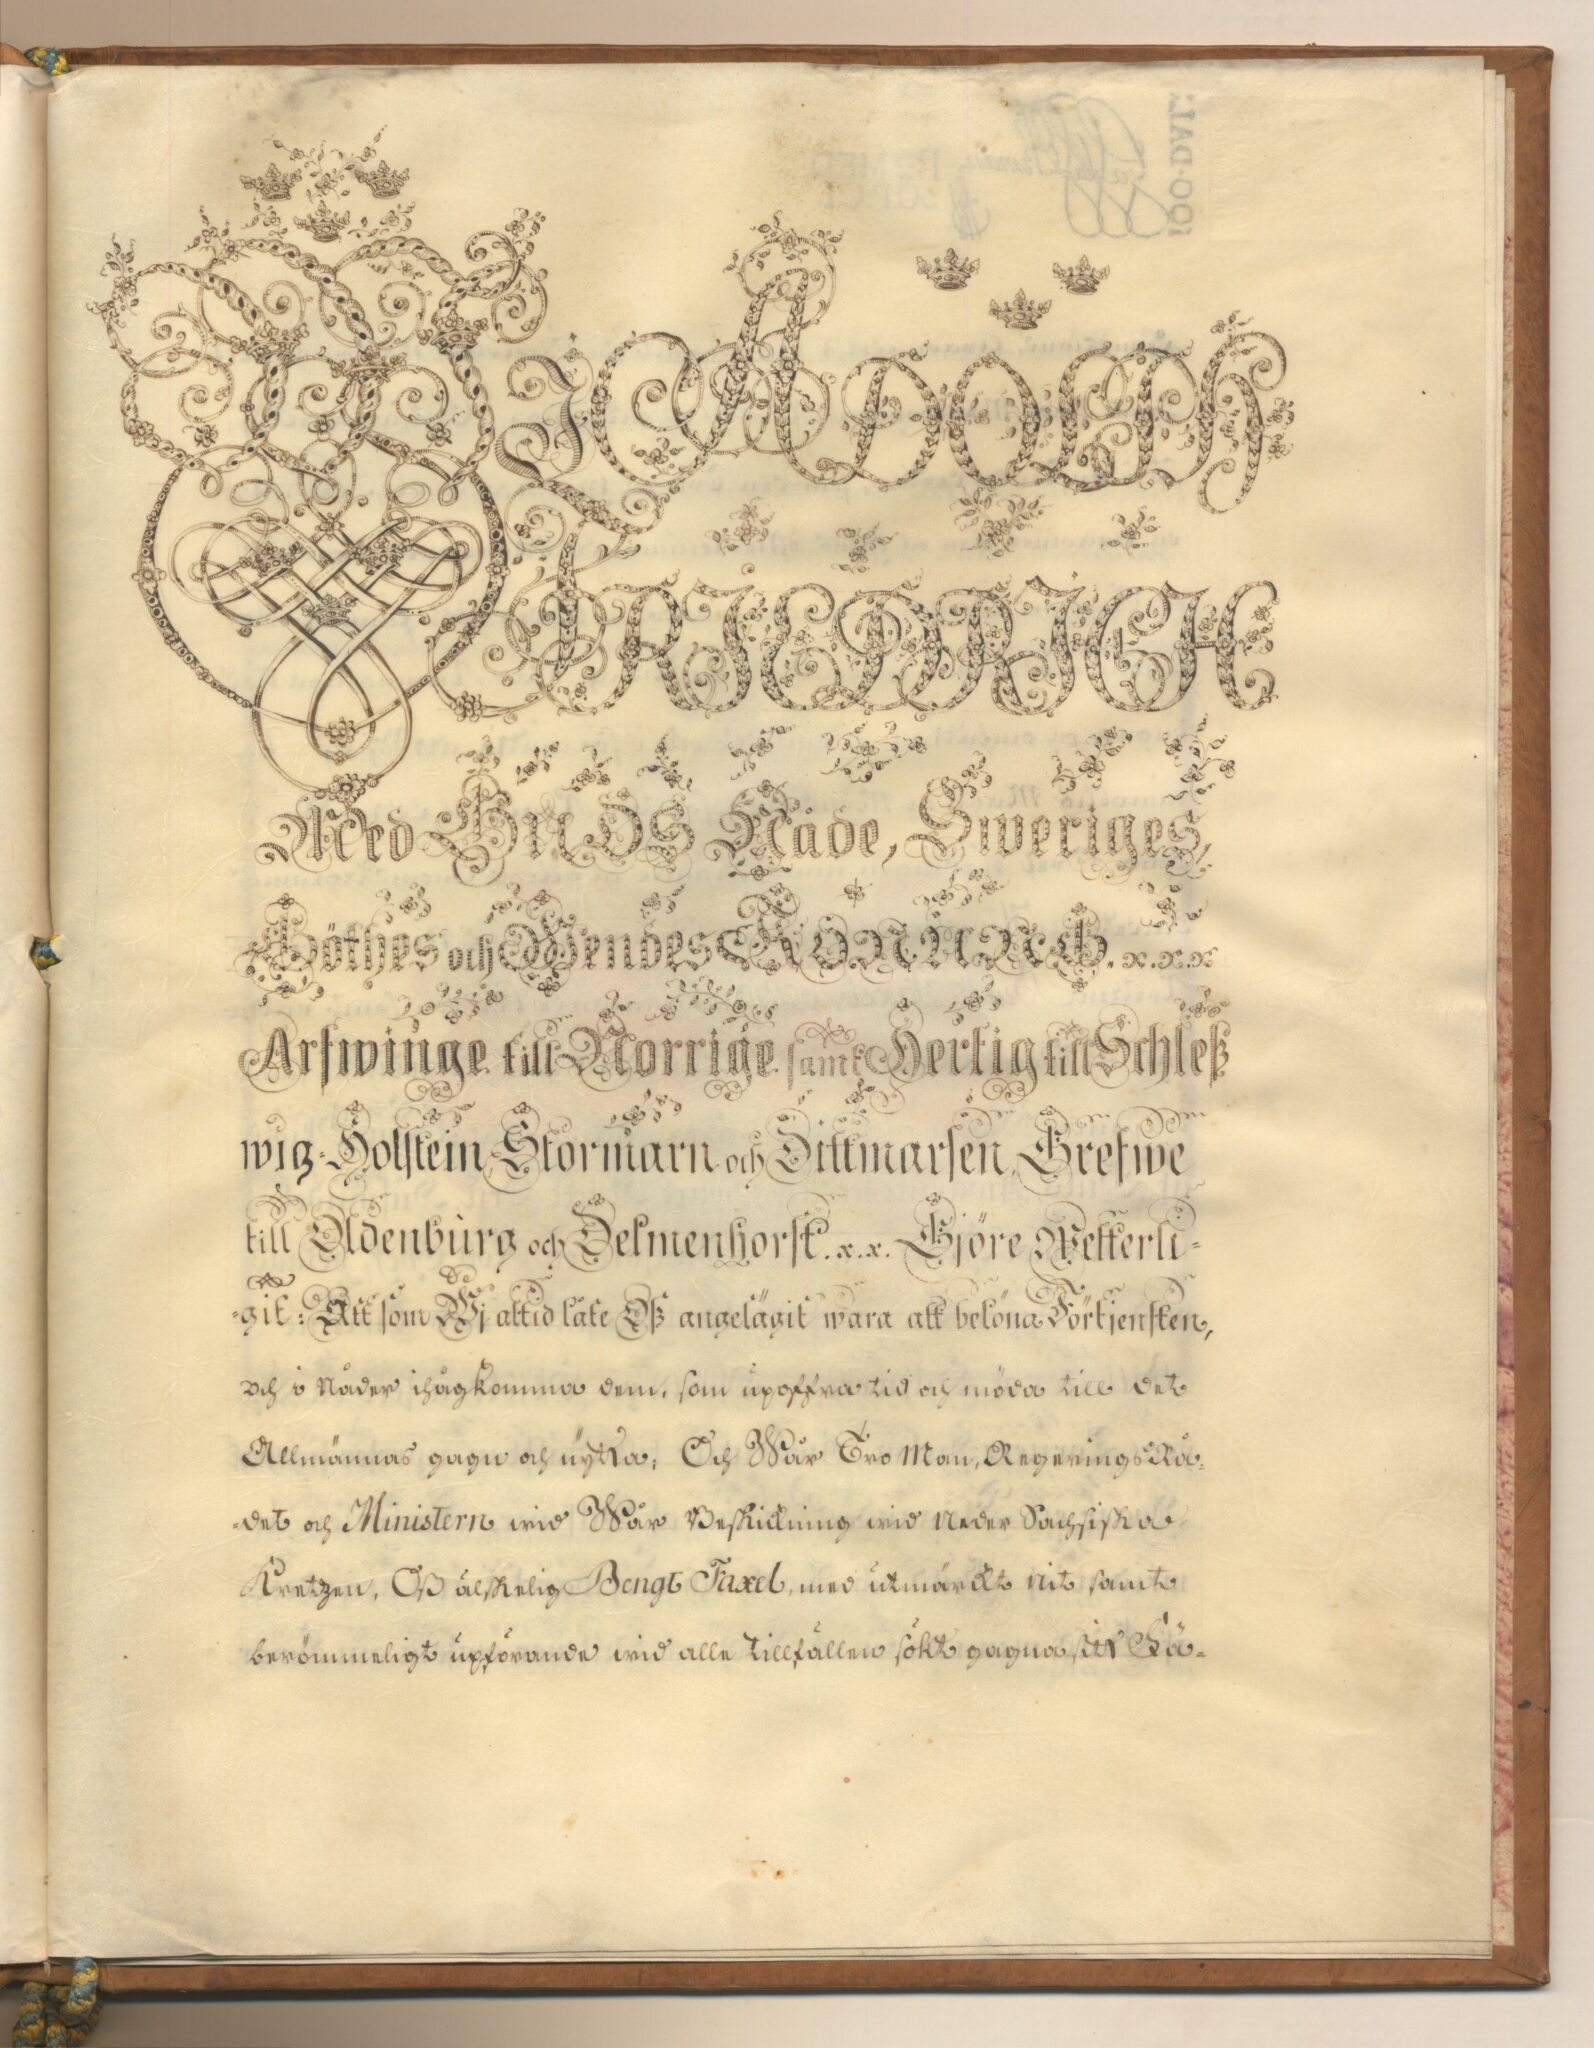 WI ADOLPH
FRIEDRICH
Med GUDS Nåde, Sweriges,
Göthes och Wendes KONUNG. x.x.x
Arfwinge till Norrige samt Hertig till Schleß
wig-Holstein, Stormarn och Dittmarsen, Grefwe
till Oldenburg och Delmenhorst. x.x. Gjöre Wetterli-
-git: Att som Wj altid låte Oß angelägit wara att belöna Förtjensten,
och i Nåder ihågkomma dem, som upoffra tid och möda till det
Allmännas gagn och nytta; Och Wår Tro Man, Regerings Rå-
-det och Ministern wid Wår Beskickning wid Neder Sachsiska
Kretzen, Oß älskelig Bengt Faxel, med utmärckt nit samt
berömmeligt upförande wid alle tillfällen sökt gagna sitt Fä-
100·DAL: